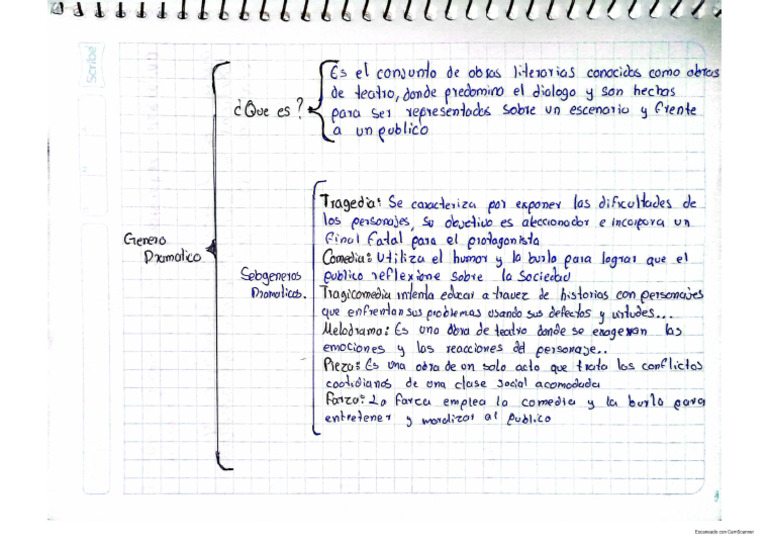 Scribe
¿Que es?
Es el conjunto de obras literarias conocidas como obras
de teatro, donde predomina el dialogo y son hechas
para ser representadas sobre un escenario y frente
a un publico
Genero
Dramatico
Sebgeneros
Dramaticos.
Tragedia: Se caracteriza por exponer las dificultades de
los personajes, su objectivo es aleccionador e incorpora un
final fatal para el protagonista
Comedia: Utiliza el humor y la burla para lograr que el
publico reflexione sobre la Sociedad
Tragicomedia intenta educar a travez de historias con personajes
que enfrentan sus problemas usando sus defectos y virtudes...
Melodrama: Es una obra de teatro donde se exageran las
emociones y las reacciones del personaje..
Pieza: Es una obra de un solo acto que trata los conflictos
cootidianos de una clase social acomodada
Farza: La farca emplea la comedia y la burla para
entretener y moralizar al publico
Escaneado con CamScanner